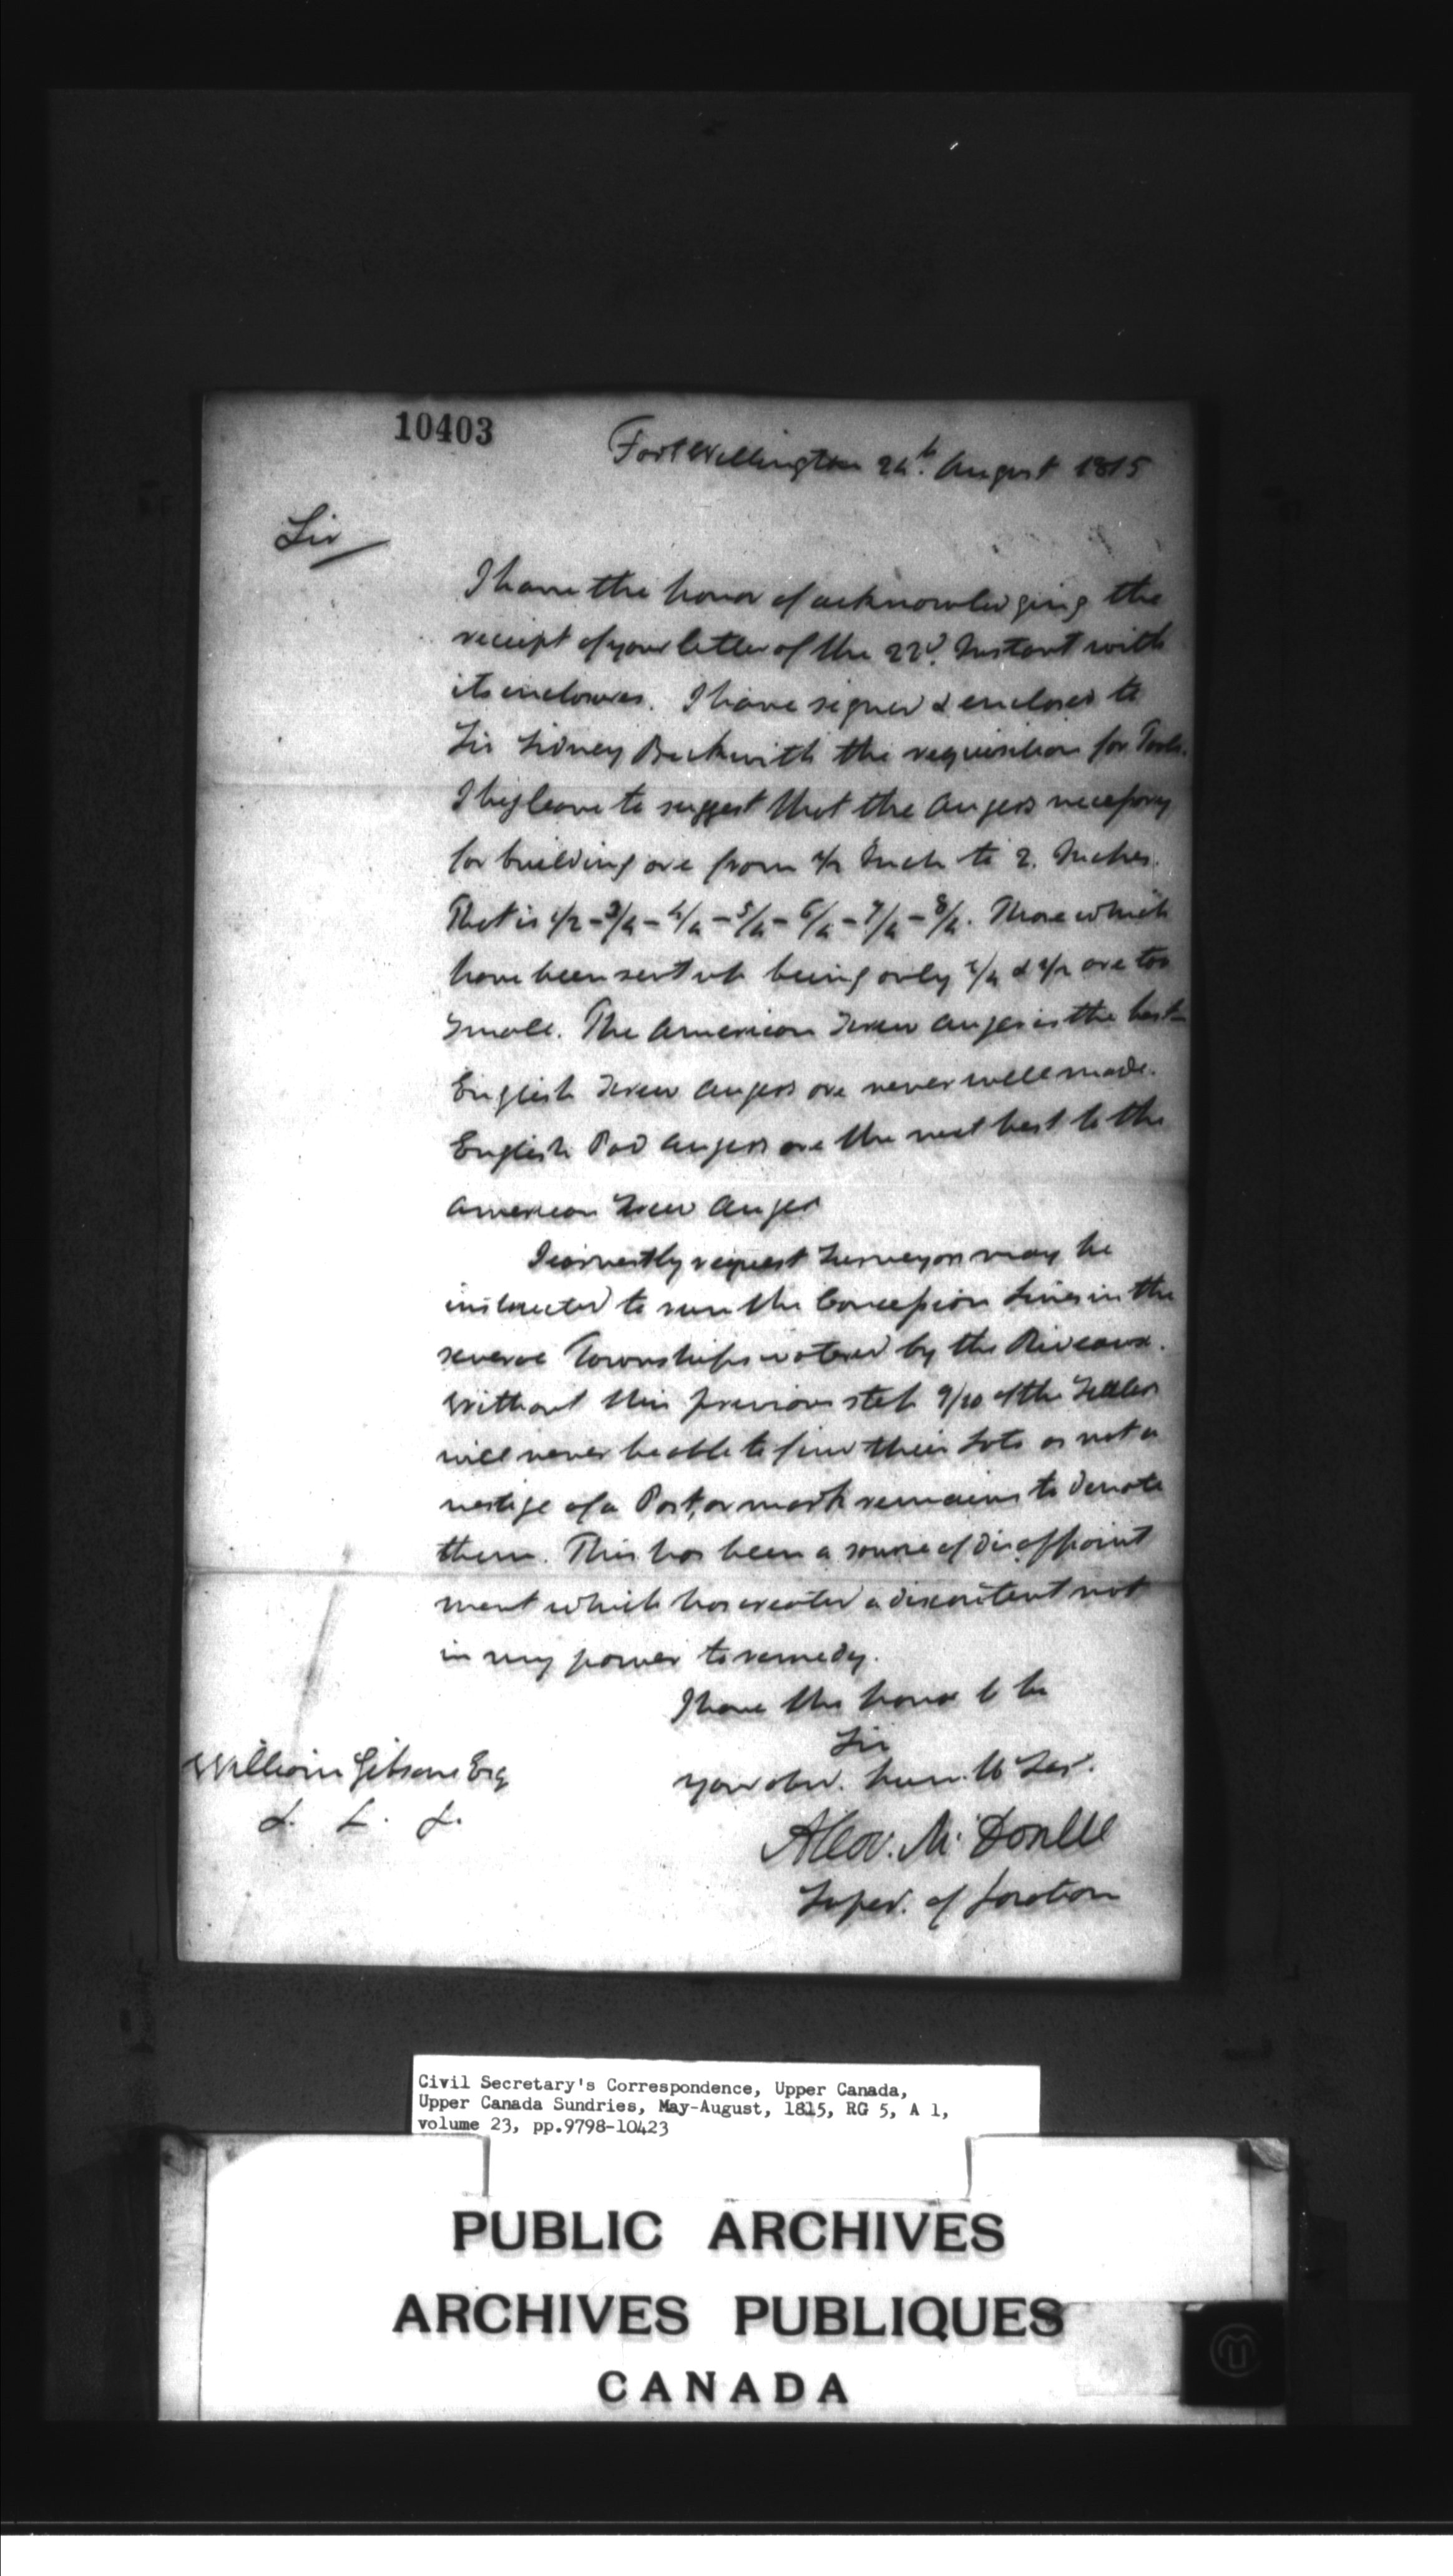 10403
Fort Wellington 24th. August 1815
Sir
I have the honor of acknowledging the
receipt of your letter of the 22d. Instant with
its inclosures. I have signed & enclosed to
Sir Sidney Beckwith the requisition for Tools.
I beg leave to suggest that the Augers necessary
for building are from 1/2 Inch to 2. Inches.
That is 1/2 - 3/4 - 4/4 - 5/4 - 6/4 - 7/4 - 8/4. Those which
have been sent up being only 1/4 & 1/2 are too
small. The American Screw Auger is the best
English Screw Augers are never well made.
English Pod Augers are the next best to the
American Screw Auger
I earnestly request Surveyors may be
instructed to run the Concession Lines in the
several Townships watered by the Rideaux.
Without this previous step 9/10 of the Settlers
will never be able to find their Lots as not a
vestige of a Post, or mark remains to denote
them. This has been a source of disappoint
ment which has created a discontent not
in my power to remedy.
I have the honor to be
Sir
your obed. hum. Ser.
Alex. McDonell
Super. of Location
William Gibson Esq
&. &. &.
Civil Secretary's Correspondence, Upper Canada,
Upper Canada Sundries, May-August, 1815, RG 5, A 1,
volume 23, pp.9798-10423
PUBLIC ARCHIVES
ARCHIVES PUBLIQUES
CANADA